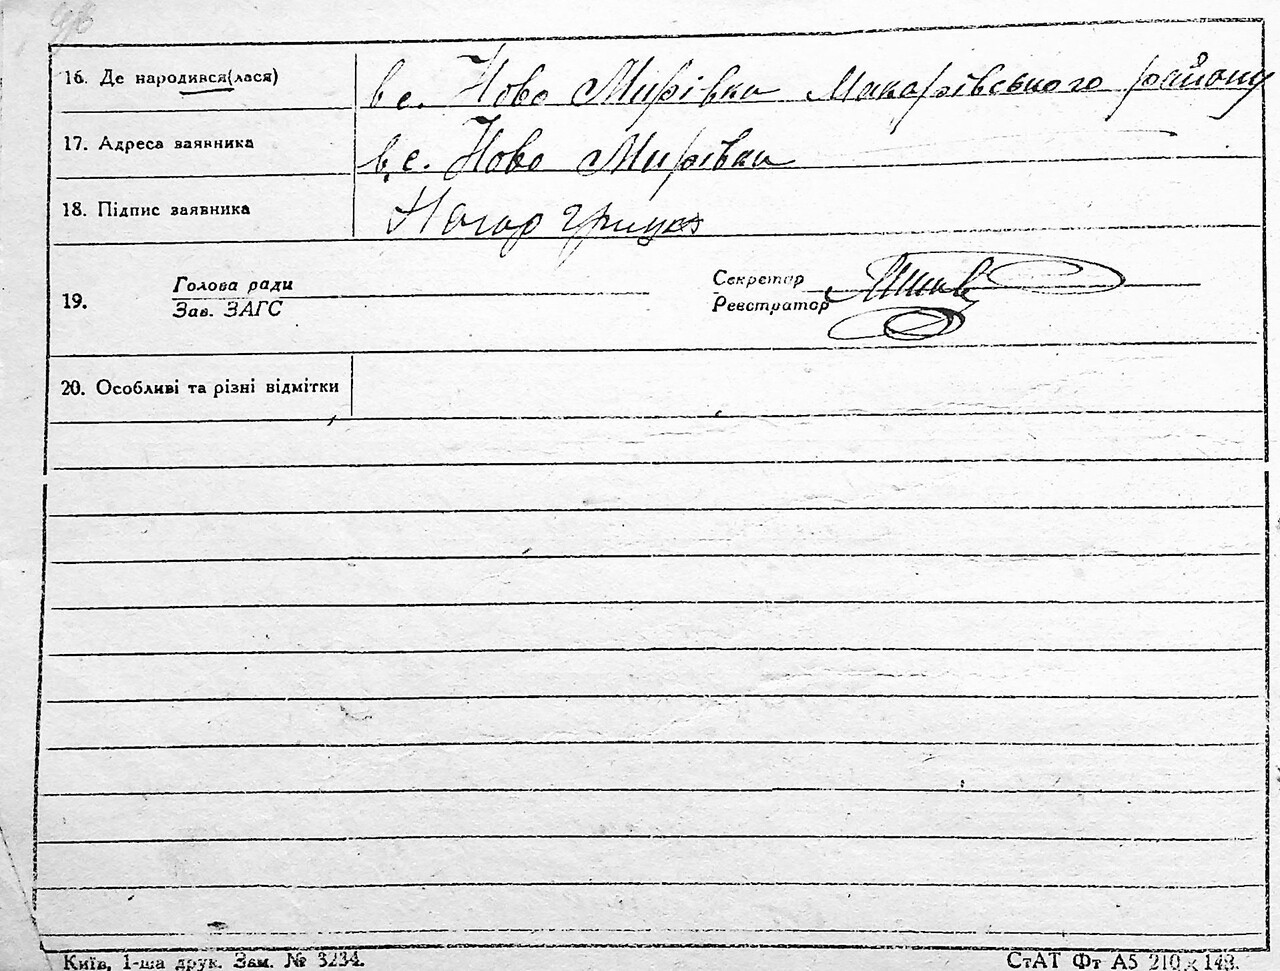 96
16. Де народився(лася) в с. Ново Мирівка Макарівського району
17. Адреса заявника в с. Ново Мирівка
18. Підпис заявника Грицко
19. Голова ради Секретар
Зав. ЗАГС Реєстратор
20. Особливі та різні відмітки
Київ, 1-ша друк. Зам. № 3234. СтАТ Фт А5 210 х 148.